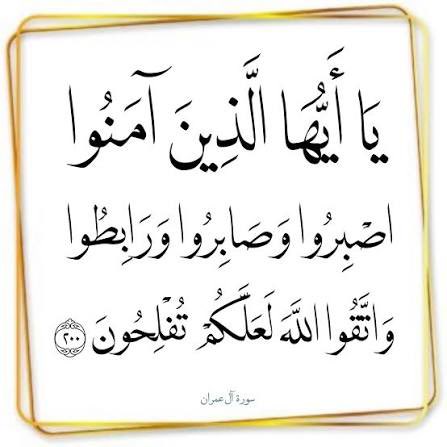 يَا أَيُّهَا الَّذِينَ آمَنُوا
اصْبِرُوا وَصَابِرُوا وَرَابِطُوا
وَاتَّقُوا اللَّهَ لَعَلَّكُمْ تُفْلِحُونَ ٢٠٠
سورة آل عمران